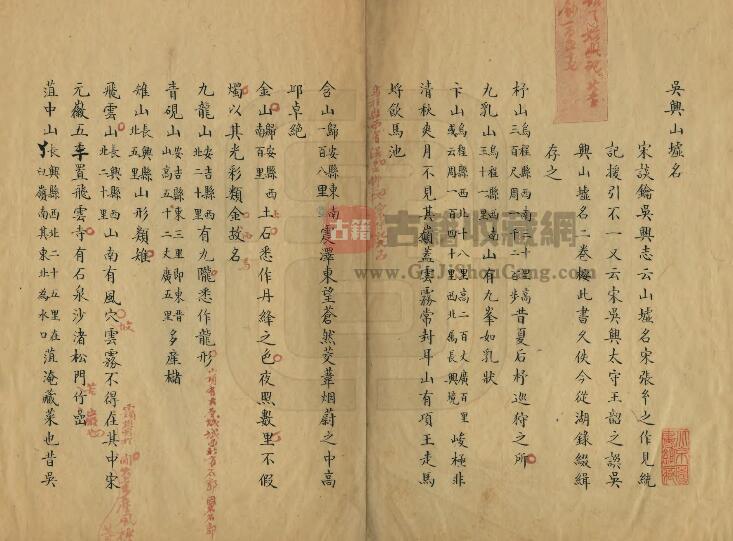 吳興山墟名
宋談鑰吳興志云山墟名宋張之作見統
記援引不一又云宋吳興太守王韶之誤吳
興山墟名二卷按此書久佚今從湖錄綴緝
存之
杼山烏程縣西南三十里高三百尺周一千二百步昔夏后杼巡狩之所
九乳山烏程縣西南三十一里南山有九峯如乳狀
卞山烏程縣西北十八里高二百丈廣百里或云周一百四十里西北属長興境峻極非
清秋爽月不見其嶺蓋雲霧常封耳山有項王走馬
埒飲馬池
含山歸安縣東南一百八里震澤東望蒼然茭葦烟蔚之中高
邱卓絕
金山歸安縣西南百里土石悉作丹絳之色夜照數里不假
燭以其光彩類金故名
九龍山安吉縣西北二十里有九隴悉作龍形
青硯山安吉縣東三里即東晉山高五十二丈廣五里多產櫧
雉山長興縣北五里山形類雉
飛雲山長興縣西北二十里山南有風穴雲霧不得在其中宋
元徽五年置飛雲寺有石泉沙渚松門竹嵓
菹中山長興縣西北二十五里在嶺南其東北為水口菹淹藏菜也昔吳
古籍收藏網
www.GuJiShouCang.Com